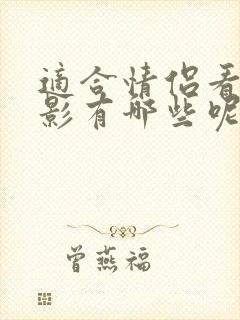 適合情侶看
影有哪些呢
曾燕福